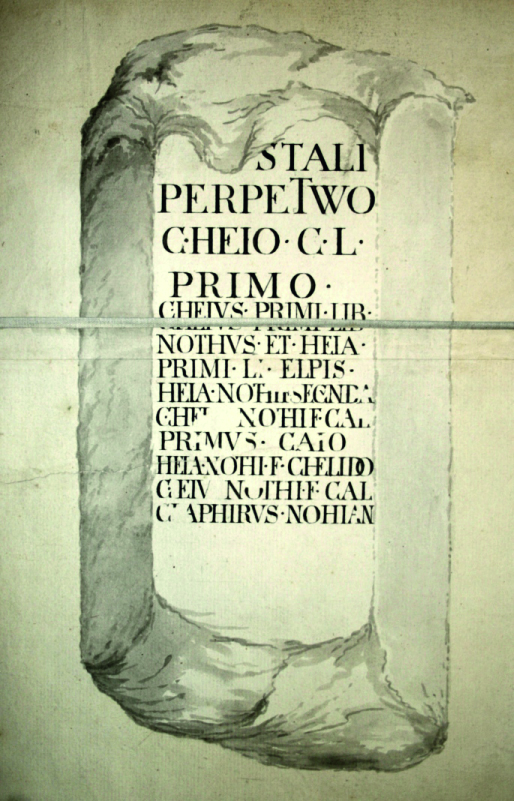 STALI
PERPETWO
C·HEIO·C·L·
PRIMO·
CHEIVS·PRIMI·LIB·
NOTHVS·ET·HEIA·
PRIMI·L· ELPIS·
HEIA·NOTHI
NOTHI·F·CAL
PRIMVS· CAIO
HEIA·NOHI·F·CHELIDO
NOTHI·F·CAL
APHIRVS·NOHIAN